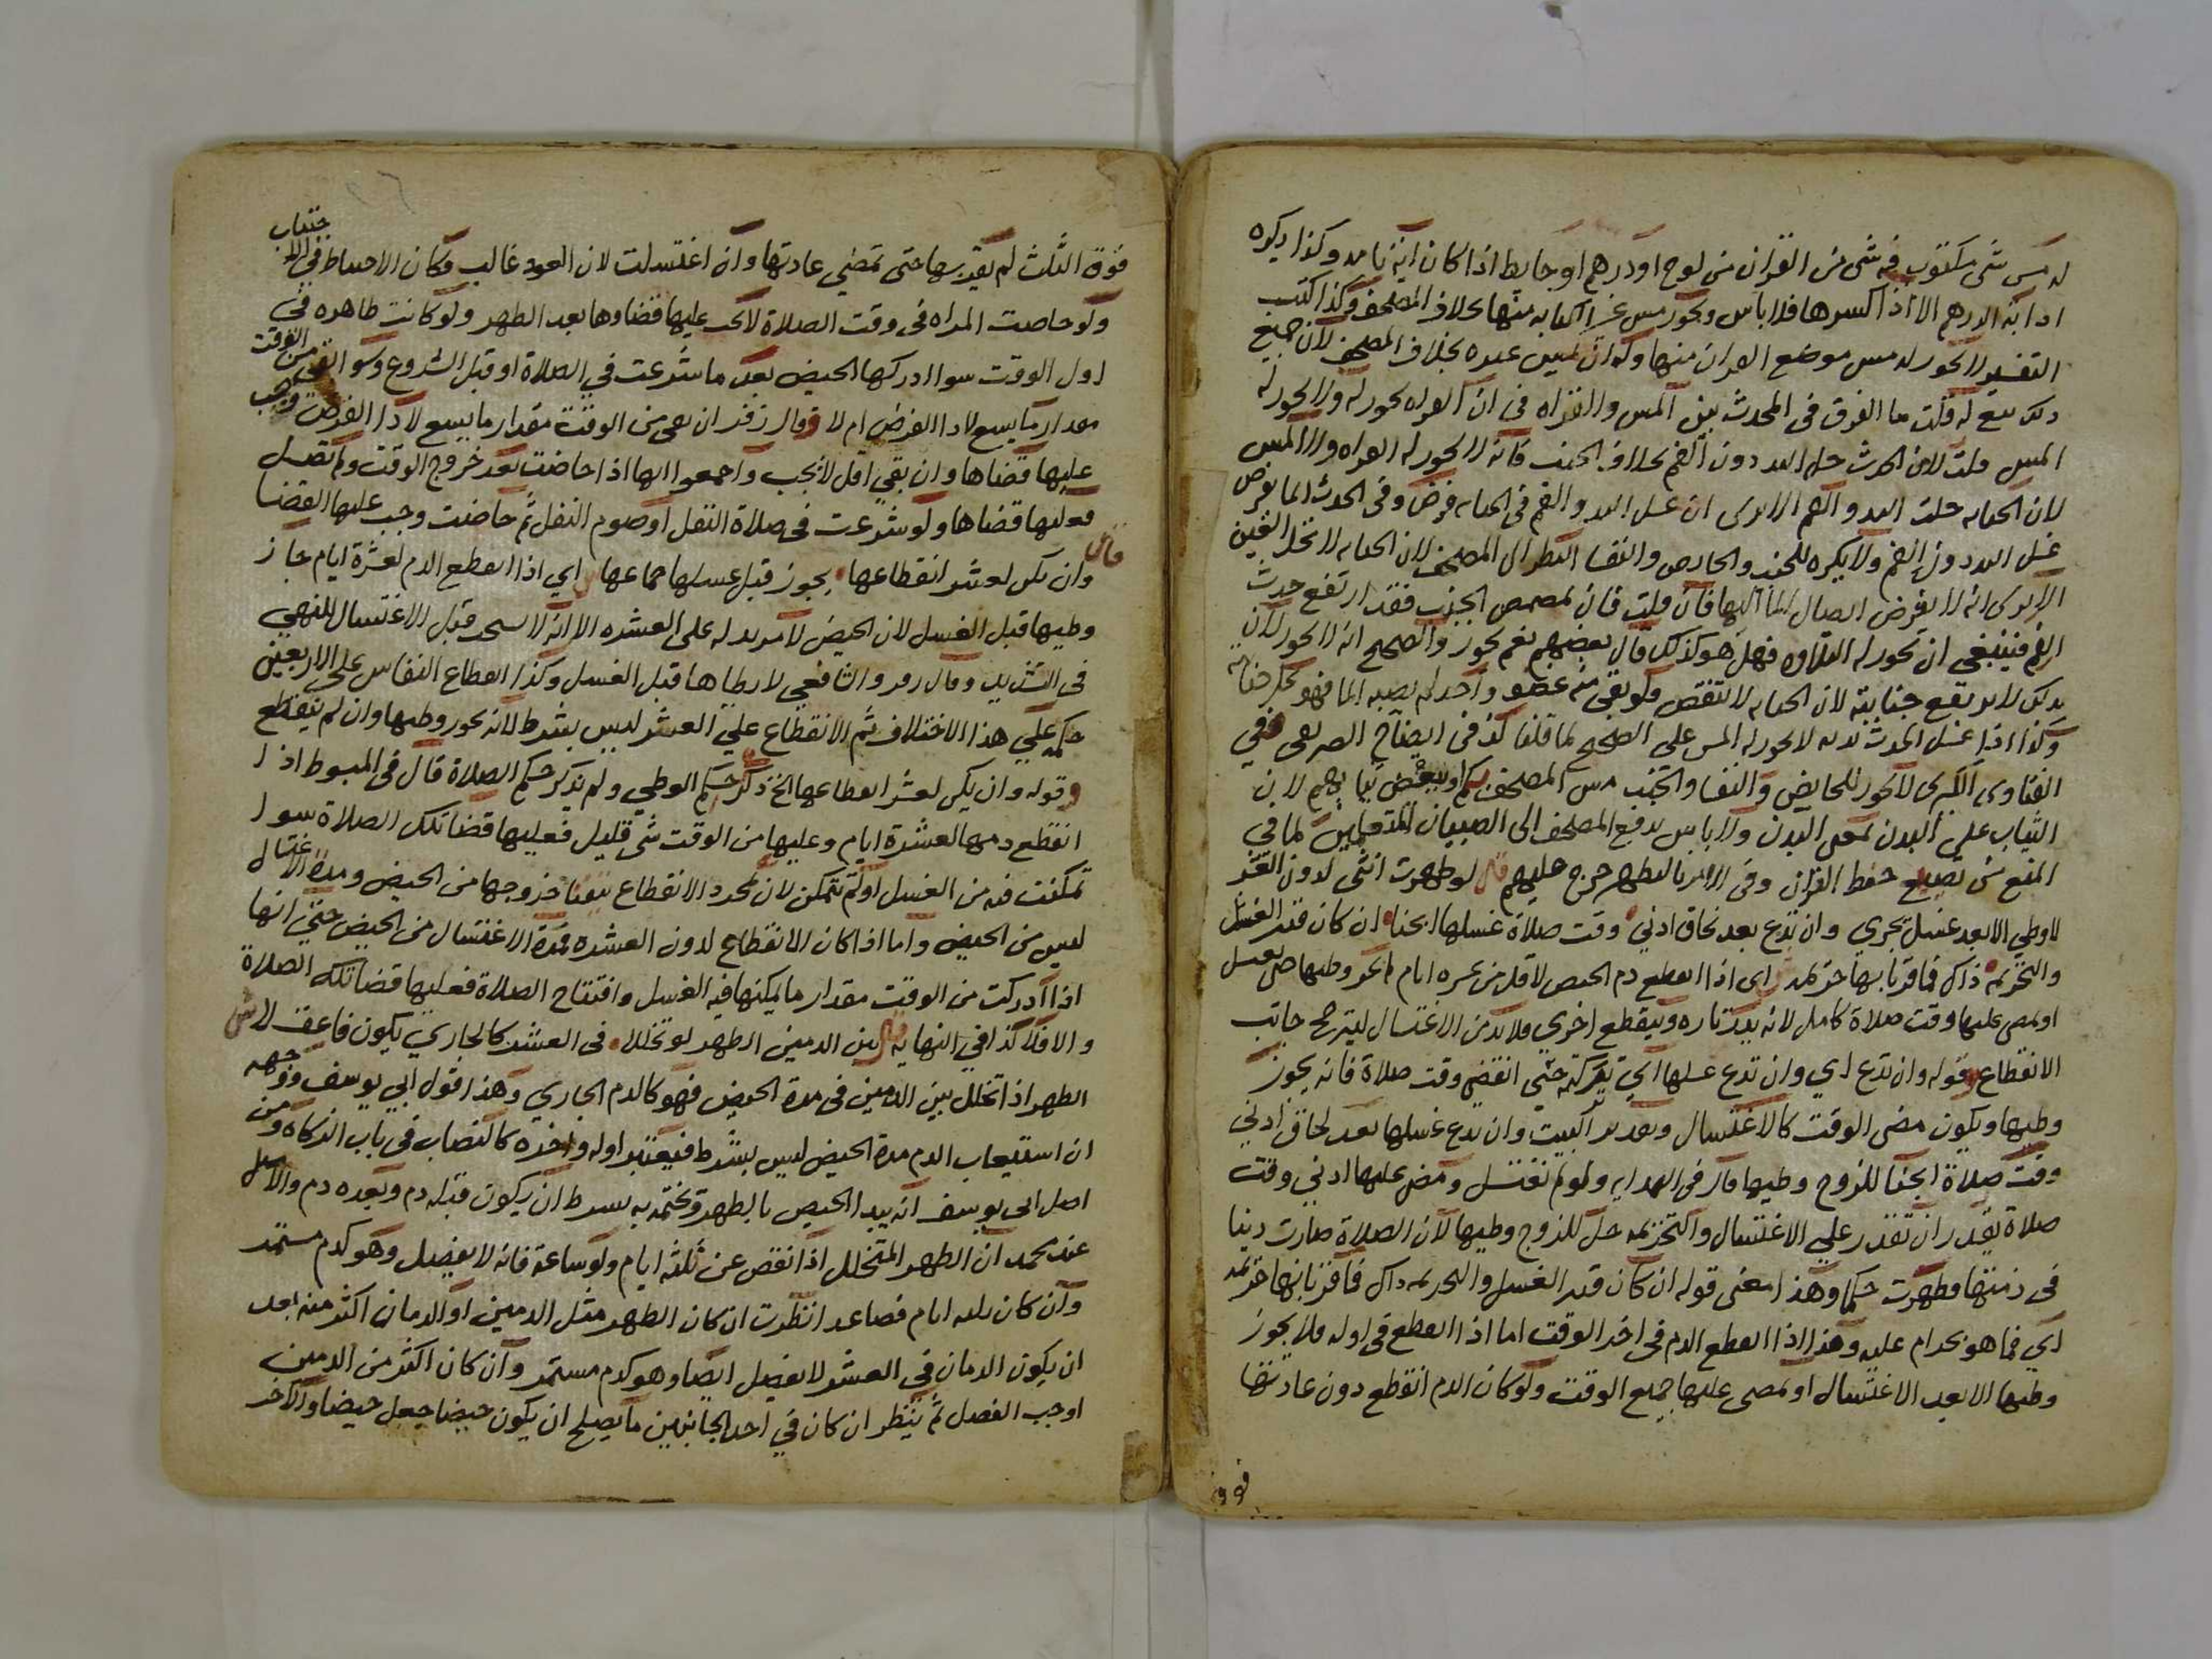 له مس شى مكتوب فيه شى من القران من لوح او درهم او حايط اذا كان اية تامه وكذا يكره
اذابة الدرهم الا اذا كسرها فلا باس ويجوز مس غير الكتابه منها بخلاف المصحف وكذا كتب
التفسير لا يجوز له مس موضع القران منها وله ان يمس غيره بخلاف المصحف لان جميع
ذلك تبع له قلت ما الفرق فى المحدث بين المس والقراه فى ان القراه يجوز له ولا يجوز له
المس قلت لان الحدث حل اليد دون الفم بخلاف الجنب فانه لا يجوز له القراه ولا المس
لان الجنابه حلت اليد والفم الا ترى ان غسل اليد والفم فى الجنابه فرض وفى الحدث انما يفرض
غسل اليد دون الفم ولا يكره للجنب والحايض والنفسا النظر الى المصحف لان الجنابه لا تحل العين
الا ترى انه لا يفرض ايصال الما اليها فان قلت فان تمضمض الجنب فقد ارتفع حدث
الفم فينبغى ان تجوز له التلاوه فهل هو كذلك قال بعضهم نعم يجوز والصحيح انه لا يجوز لان
بذلك لا يرتفع جنابته لان الجنابه لا تنتقص فلو بقى منه عضو واحد لم يصبه الما فهو بحكم جنابته
وكذا اذا غسل المحدث يديه لا يجوز له المس على الصحيح لما قلنا كذا فى ايضاح الصيرفى وفي
الفتاوى الكبرى لا يجوز للحايض والنفسا والجنب مس المصحف بكم او ببعض ثيابهم لان
الثياب على البدن بمحل البدن ولا باس بدفع المصحف الى الصبيان المتعلمين لما في
المنع من تضييع حفظ القران وفى الامر بالتطهر حرج عليهم قال لو طهرت انثى لدون العشر
لا وطي الا بعد غسل تجري وان تدع بعد لحاق ادني وقت صلاة غسلها ابحنا ان كان قدر الغسل
والتحريمه ذاك فما قربانها حرمه اى اذا انقطع دم الحيض لاقل من عشره ايام لم يجز وطيها حتى تغتسل
او يمضى عليها وقت صلاة كامل لانه يدر تاره وينقطع اخري فلا بد من الاغتسال ليترجح جانب
الانقطاع وقوله وان تدع اي وان تدع غسلها اي تتركه حتى انقضى وقت صلاة فانه يجوز
وطيها ويكون مضى الوقت كالاغتسال وتقدير البيت وان تدع غسلها بعد لحاق ادني
وقت صلاة ابحنا للزوج وطيها قال فى الهدايه ولو لم تغتسل ومضى عليها ادني وقت
صلاة بقدر ان تقدر علي الاغتسال والتحريمه حل للزوج وطيها لان الصلاة صارت دينا
فى ذمتها فطهرت حكما وهذا معنى قوله ان كان قدر الغسل والتحريمه ذاك فما قربانها حرمه
اي فما هو بحرام عليه وهذا اذا انقطع الدم فى اخر الوقت اما اذا انقطع فى اوله فلا يجوز
وطيها الا بعد الاغتسال او يمضى عليها جميع الوقت ولو كان الدم انقطع دون عادتها
فوق
فوق الثلث لم يقربها حتى تمضي عادتها وان اغتسلت لان العود غالب فكان الاحتياط في الاجتناب
ولو حاضت المراه فى وقت الصلاة لا يجب عليها قضاوها بعد الطهر ولو كانت طاهره في
اول الوقت سوا ادركها الحيض بعد ما شرعت في الصلاة او قبل الشروع وسوا بقى من الوقت
مقدار ما يسع لادا الفرض ام لا وقال زفر ان بقى من الوقت مقدار ما يسع لادا الفرض وجب
عليها قضاها وان بقي اقل لا يجب واجمعوا انها اذا حاضت بعد خروج الوقت ولم تصل
فعليها قضاها ولو شرعت فى صلاة النفل او صوم النفل ثم حاضت وجب عليها القضا
قال وان يكن لعشر انقطاعها يجوز قبل غسلها جماعها اي اذا انقطع الدم لعشرة ايام جاز
وطيها قبل الغسل لان الحيض لا مزيد له على العشره الا انه لا يستحب قبل الاغتسال للنهي
فى التشديد وقال زفر والشافعي لا يطاها قبل الغسل وكذا انقطاع النفاس على الاربعين
حكمه علي هذا الاختلاف ثم الانقطاع علي العشر ليس بشرط لانه يجوز وطيها وان لم ينقطع
وقوله وان يكن لعشر انقطاعها الخ ذكر حكم الوطي ولم يذكر حكم الصلاة قال فى المبسوط اذا
انقطع دمها لعشرة ايام وعليها من الوقت شى قليل فعليها قضا تلك الصلاة سوا
تمكنت فيه من الغسل او لم تتمكن لان بمجرد الانقطاع تيقنا خروجها من الحيض ومدة الاغتسال
ليس من الحيض واما اذا كان الانقطاع لدون العشره فمدة الاغتسال من الحيض حتي انها
اذا ادركت من الوقت مقدار ما يمكنها فيه الغسل وافتتاح الصلاة فعليها قضا تلك الصلاة
والا فلا كذا في النهايه قال بين الدمين الطهر لو تخللا فى العشر كالجاري يكون فاعقلا ش
الطهر اذا تخلل بين الدمين فى مدة الحيض فهو كالدم الجاري وهذا قول ابي يوسف ووجهه
ان استيعاب الدم مدة الحيض ليس بشرط فيعتبر اوله واخره كالنصاب فى باب الزكاه ومن
اصل ابى يوسف انه يبدا الحيض بالطهر ويختمه به بشرط ان يكون قبله دم وبعده دم والاصل
عند محمد ان الطهر المتخلل اذا نقص عن ثلثه ايام ولو ساعة فانه لا يفصل وهو كدم مستمر
وان كان ثلثه ايام فصاعدا نظرت ان كان الطهر مثل الدمين او الدمان اكثر منه بعد
ان يكون الدمان في العشر لا يفصل ايضا وهو كدم مستمر وان كان اكثر من الدمين
اوجب الفصل ثم ينظر ان كان في احد الجانبين ما يصلح ان يكون حيضا جعل حيضا والاخر